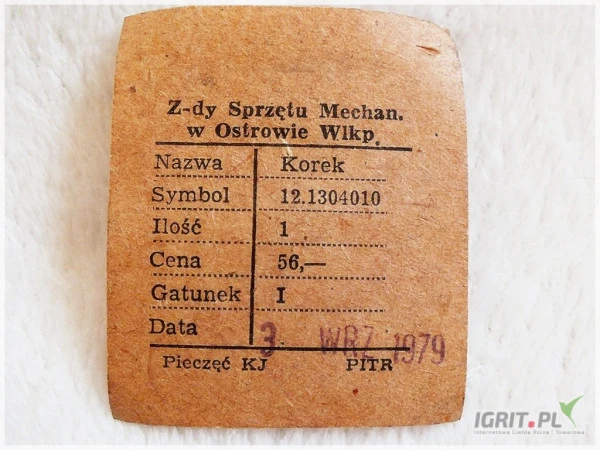 Z-dy Sprzętu Mechan.
w Ostrowie Wlkp.
Nazwa Korek
Symbol 12.1304010
Ilość 1
Cena 56,—
Gatunek I
Data 3 WRZ 1979
Pieczęć KJ PITR
IGRIT.PL
Internetowa Giełda Rolna i Towarowa